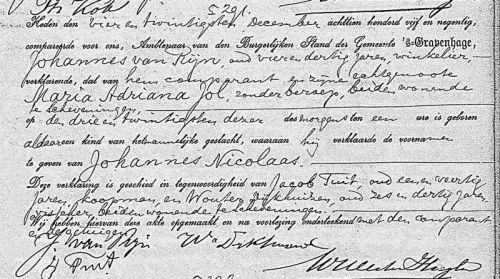 5291.
Heden den vier en twintigsten December achttien honderd vijf en negentig,
compareerde voor ons, Ambtenaar van den Burgerlijken Stand der Gemeente 's-Gravenhage,
Johannes van Rijn, oud vier en dertig jaren, winkelier,
verklarende, dat van hem comparant en zijne echtgenoote
Maria Adriana Jol, zonder beroep, beiden wonende
te Scheveningen,
op den drie en twintigsten dezer des morgens ten een ure is geboren
aldaar een kind van het mannelijke geslacht, waaraan hij verklaarde de voornamen
te geven van Johannes Nicolaas.
Deze verklaring is geschied in tegenwoordigheid van Jacob Tuit, oud een en veertig
jaren, koopman, en Wouter Dijkhuizen, oud zes en dertig jaren,
visscher, beiden wonende te Scheveningen,
en is hiervan deze akte opgemaakt en na voorlezing onderteekend met den comparant
en getuigen.
J. van Rijn